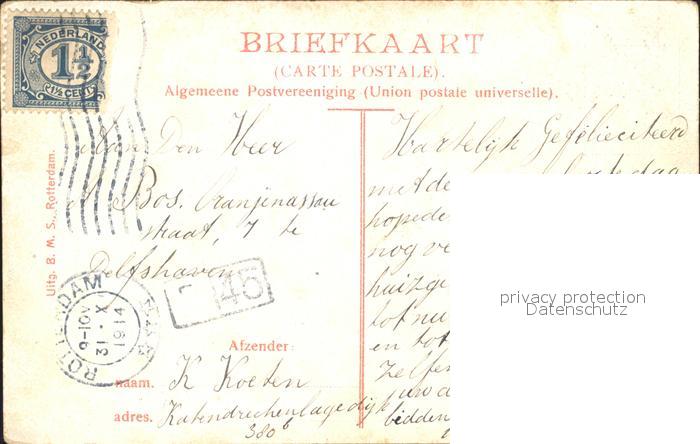 NEDERLAND
1½
1½ CENT
BRIEFKAART
(CARTE POSTALE).
Algemeene Postvereeniging (Union postale universelle).
Uitg. B. M. S., Rotterdam.
Aan Den Heer
A Bos. Oranjenassau
straat, 7 te
Delfshaven
45
ROTTERDAM
9-10V
31 X
1914
Afzender:
naam. K Koeten
adres. Katendrechenlagedijk
380b
Hartelijk Gefelieciteerd
met de
hopede
nog ve
huizge
tot nu
en tot
Zelfen
uw
bidden
privacy protection
Datenschutz